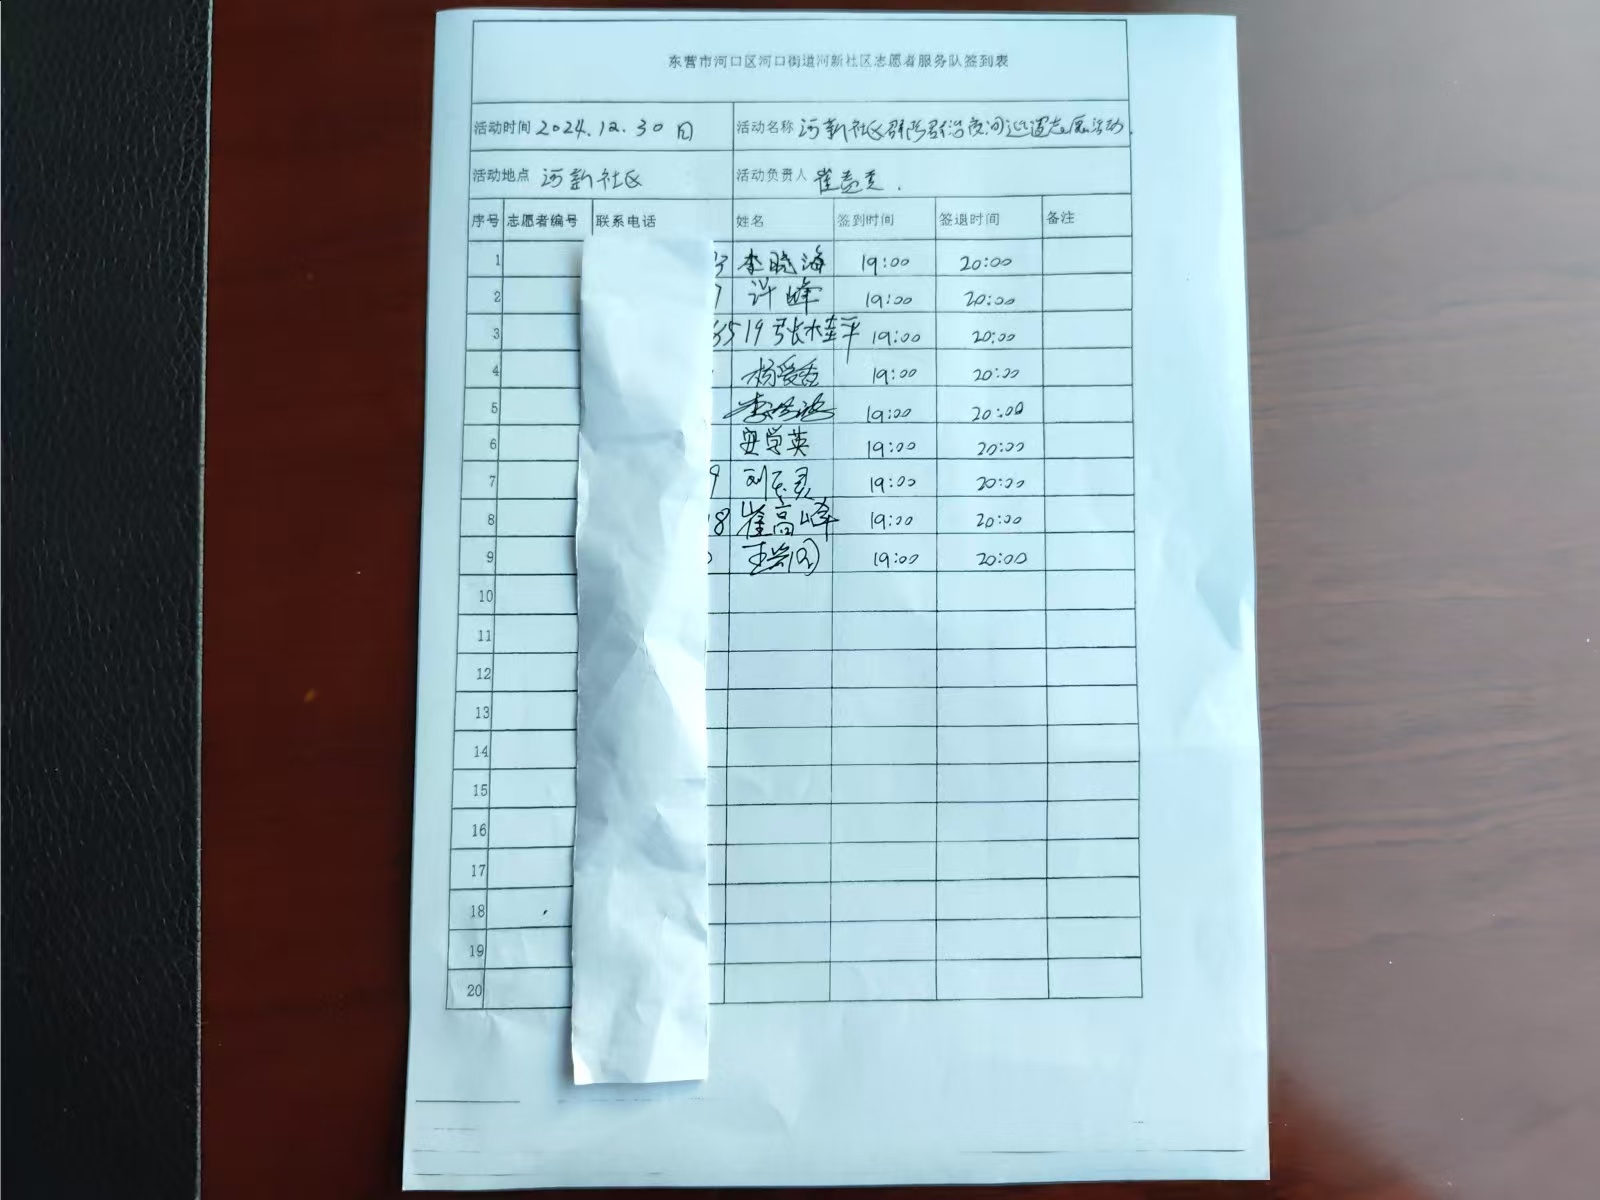 东营市河口区河口街道河新社区志愿者服务队签到表
活动时间 2024.12.30日 活动名称 河新社区群防群治夜间巡逻志愿活动.
活动地点 河新社区 活动负责人 崔
序号 志愿者编号 联系电话 姓名 签到时间 签退时间 备注
1 3 李晓海 19:00 20:00
2 7 许峰 19:00 20:00
3 3519 张桂平 19:00 20:00
4 杨爱香 19:00 20:00
5 李 19:00 20:00
6 安学英 19:00 20:00
7 9 刘玉灵 19:00 20:00
8 18 崔高峰 19:00 20:00
9 王 19:00 20:00
10
11
12
13
14
15
16
17
18
19
20